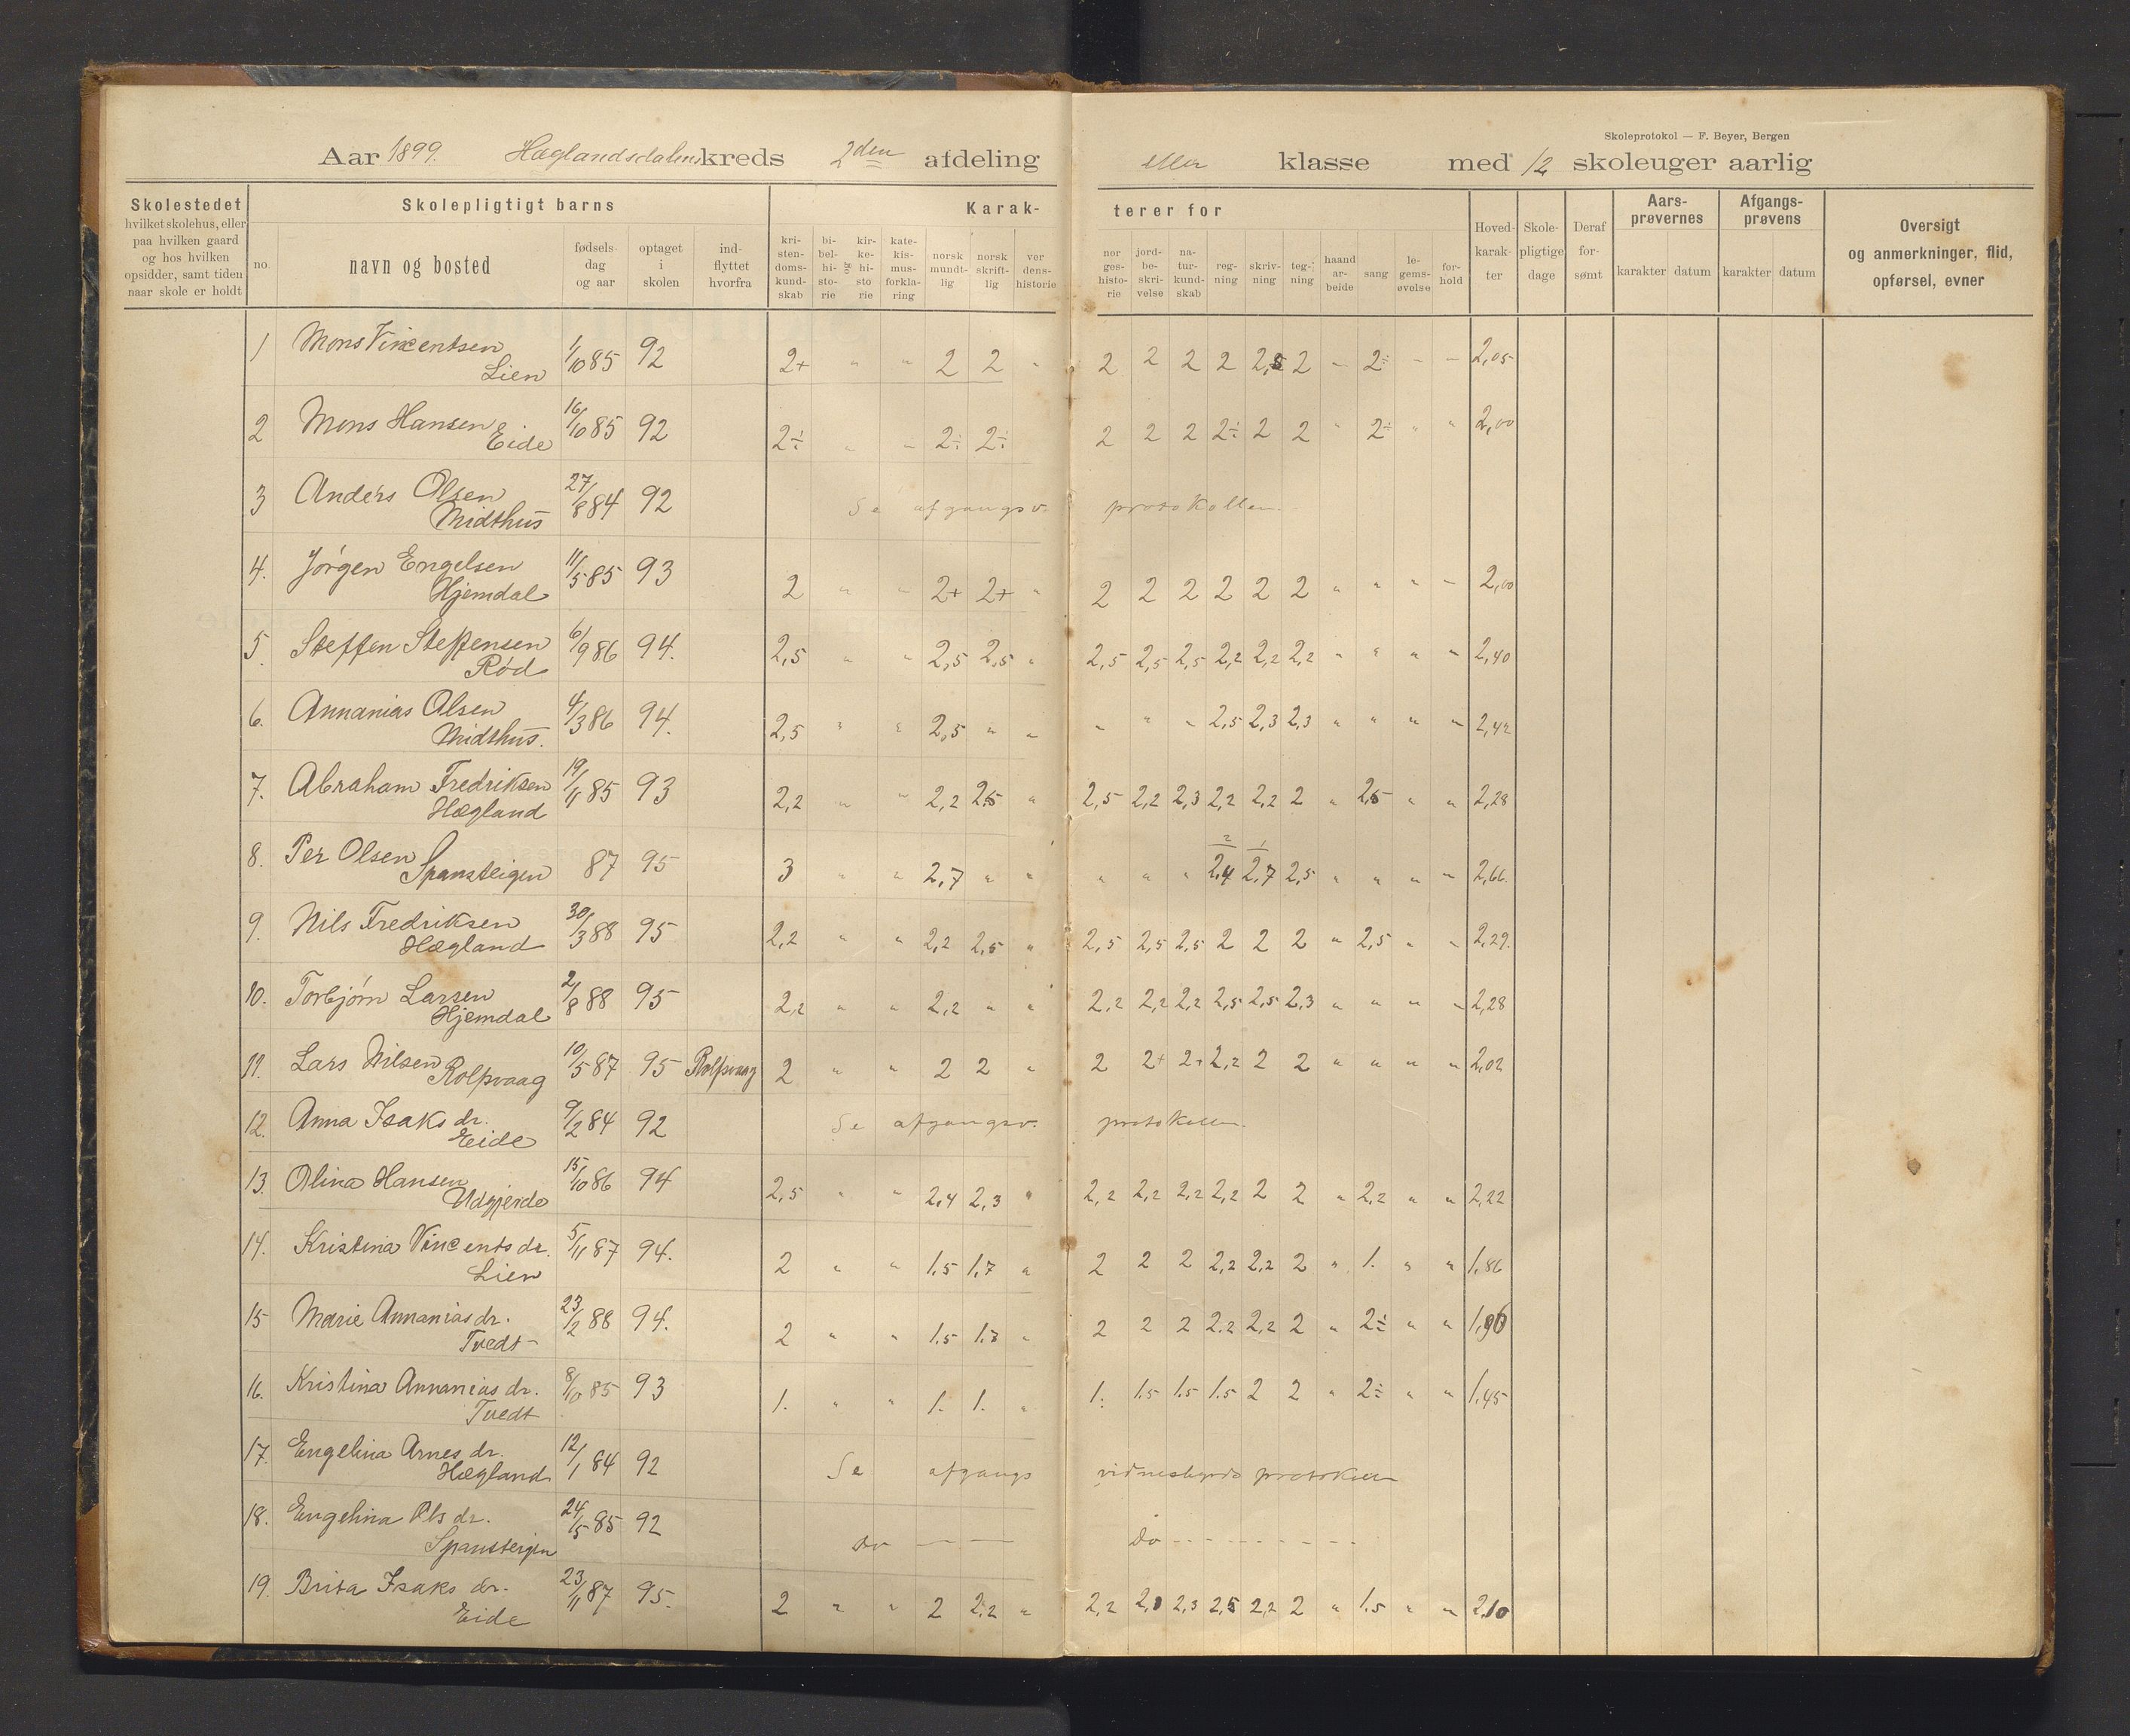 Skoleprotokol — F. Beyer, Bergen
Aar 1899. Hæglandsdalens kreds 2den afdeling eller klasse med 12 skoleuger aarlig
Skolestedet
hvilket skolehus, eller
paa hvilken gaard
og hos hvilken
opsidder, samt tiden
naar skole er holdt
Skolepligtigt barns
no.
navn og bosted
fødsels-
dag
og aar
optaget
i
skolen
ind-
flyttet
hvorfra
Karak-
kri-
sten-
doms-
kund-
skab
bi-
bel-
hi-
sto-
rie
og
kir-
ke-
hi-
sto
rie
kate-
kis-
mus-
forkla-
ring
norsk
mundt-
lig
norsk
skrift-
lig
ver
dens-
historie
terer for
nor
ges-
histo-
rie
jord-
be-
skri-
velse
na-
tur-
kund-
skab
reg-
ning
skriv-
ning
teg-
ning
haand
ar-
beide
sang
le-
gems-
øvelse
for-
hold
Hoved-
karak-
ter
Skole-
pligtige
dage
Deraf
for-
sømt
Aars-
prøvernes
karakter datum
Afgangs-
prøvens
karakter datum
Oversigt
og anmerkninger, flid,
opførsel, evner
1 Mons Vincentsen 1/10 85 92 2+ " " 2 2 " 2 2 2 2 2,5 2 – 2÷ – – 2,05
Lien
2 Mons Hansen 16/10 85 92 2÷ " " 2÷ 2÷ 2 2 2 2÷ 2 2 " 2÷ " " 2,00
Eide
3 Anders Olsen 27/8 84 92 Se afgangsv. protokollen.
Midthus
4. Jörgen Engelsen 11/5 85 93 2 " " 2+ 2+ " 2 2 2 2 2 2 " " " " 2,00
Hjemdal
5. Steffen Steffensen 6/9 86 94. 2,5 " " 2,5 2,5 " 2,5 2,5 2,5 2,2 2,2 2,2 " " " " 2,40
Röd
6. Annanias Olsen 4/3 86 94. 2,5 " " 2,5 " " " " " 2,5 2,3 2,3 " " " " 2,42
Midthus.
7. Abraham Fredriksen 19/11 85 93 2,2 " " 2,2 2,5 " 2,5 2,2 2,3 2,2 2,2 2 " 2,5 " " 2,28
Hægland
8. Per Olsen 87 95 3 " " 2,7 " " " " " 2,4 2,7 2,5 " " " " 2,66.
Spansteigen
9. Nils Fredriksen 30/3 88 95 2,2 " " 2,2 2,5 " 2,5 2,5 2,5 2 2 2 " 2,5 " " 2,29.
Hægland
10. Torbjörn Larsen 2/8 88 95 2,2 " " 2,2 " " 2,2 2,2 2,2 2,5 2,5 2,3 " " " " 2,28
Hjemdal
11. Lars Nilsen 10/5 87 95 Rolpvaag 2 " " 2 2 " 2 2+ 2+ 2,2 2 2 " " " " 2,02
Rolpvaag
12. Anna Isaks dr. 9/2 84 92 Se afgangsv. protokollen.
Eide
13. Olina Hansen 15/10 86 94 2,5 " " 2,4 2,3 " 2,2 2,2 2,2 2,2 2 2 " 2,2 " " 2,22
Udgjerde
14. Kristina Vincents dr. 5/11 87 94. 2 " " 1.5 1,7 " 2 2 2 2,2 2,2 2 " 1. " " 1,86
Lien
15 Marie Annanias dr. 23/2 88 94. 2 " " 1.5 1.7 " 2 2 2 2.2 2,2 2 " 2÷ " " 1,96
Tvedt
16. Kristina Annanias dr. 8/10 85 93 1. " " 1. 1. " 1. 1.5 1.5 1.5 2 2 " 2÷ " " 1,45
Tvedt
17. Engelina Arnes dr. 12/1 84 92 Se afgangs vidnesbyrds protokollen
Hægland
18. Engelina Ols dr. 24/5 85 92 do — — — do - - - - - - - -
Spansteigen
19. Brita Isaks dr. 23/11 87 95. 2 " " 2 2,2 " 2,2 2,3 2,5 2,2 2 " 1.5 " " 2,10
Eide